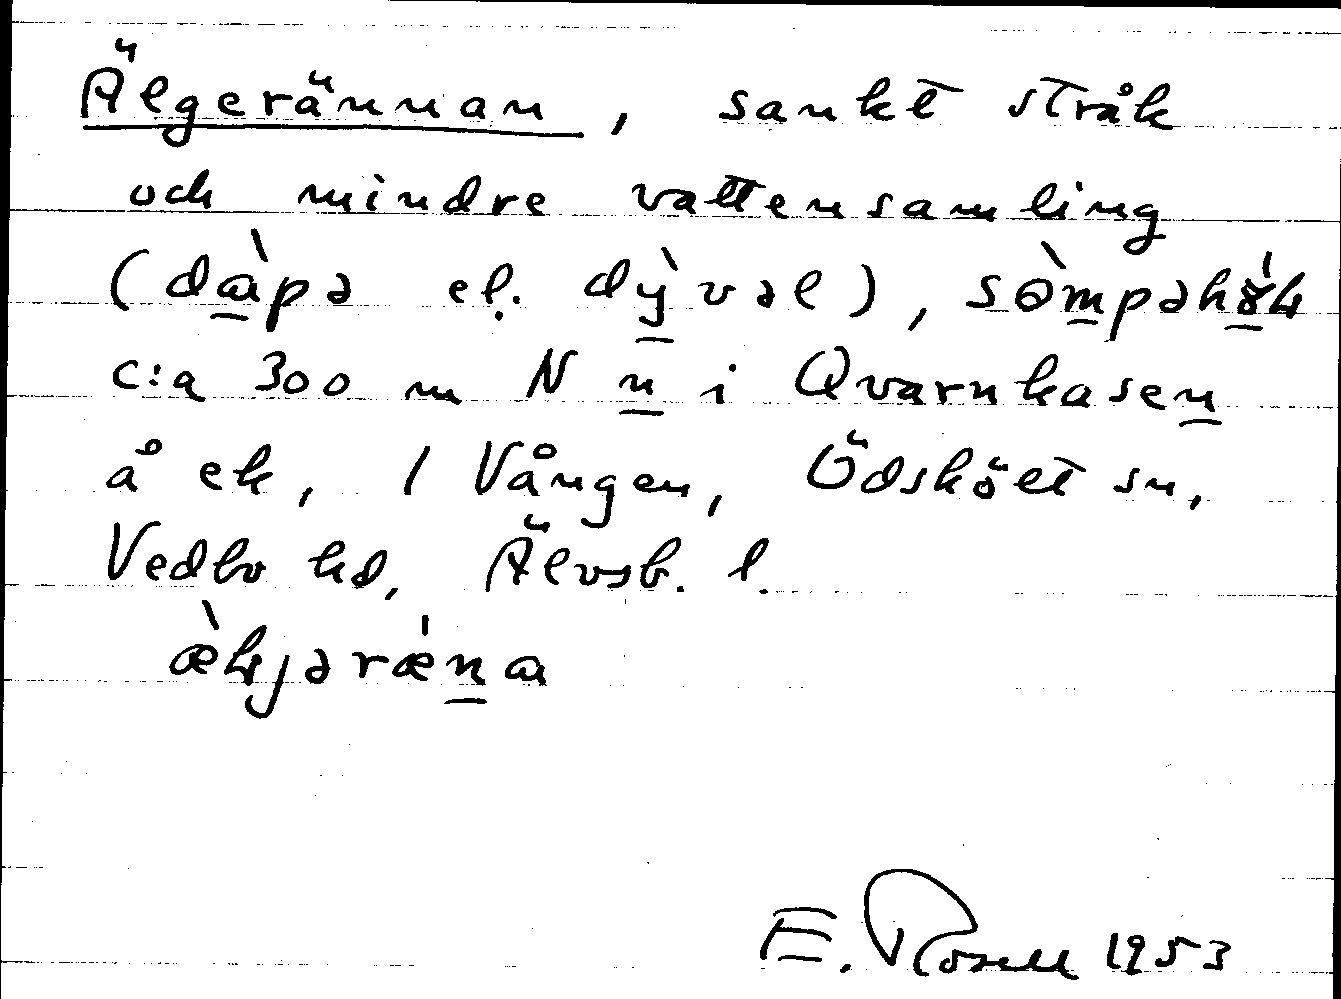 Älgerännan, sankt stråk
och mindre vattensamling
(dàpə el. dỳ̠vəl),
c:a 300 m N n i Qvarnkasen
å ek, 1 Vången, Ödsköлt sn,
Vedbo hd, Älvsb. l.
E. Rosell 1953